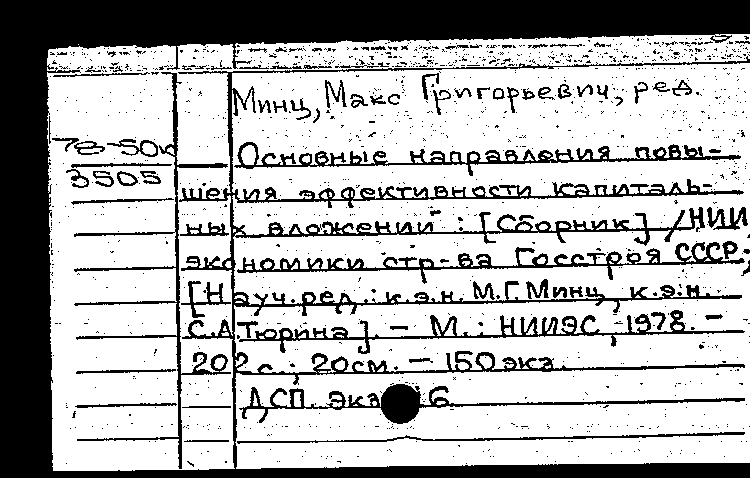 Минц, Макс Григорьевич, ред.
78-50к
3505
Основные направления повы-
шения эффективности капиталь-
ных вложений : [Сборник] / НИИ
экономики стр-ва Госстроя СССР;
[Науч. ред.: к.э.н. М.Г. Минц, к.э.н.
С.А. Тюрина]. - М.: НИИЭС, 1978. -
202 с.; 20 см. - 150 экз.
ДСП. Экз 6